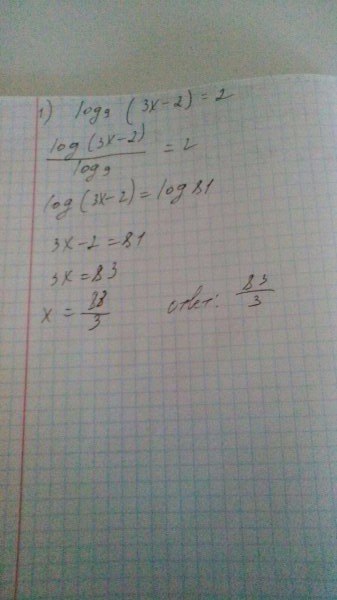 1) log₉ (3x-2) = 2
log (3x-2) / log 9 = 2
log (3x-2) = log 81
3x-2 = 81
3x = 83
x = 83/3 ответ: 83/3